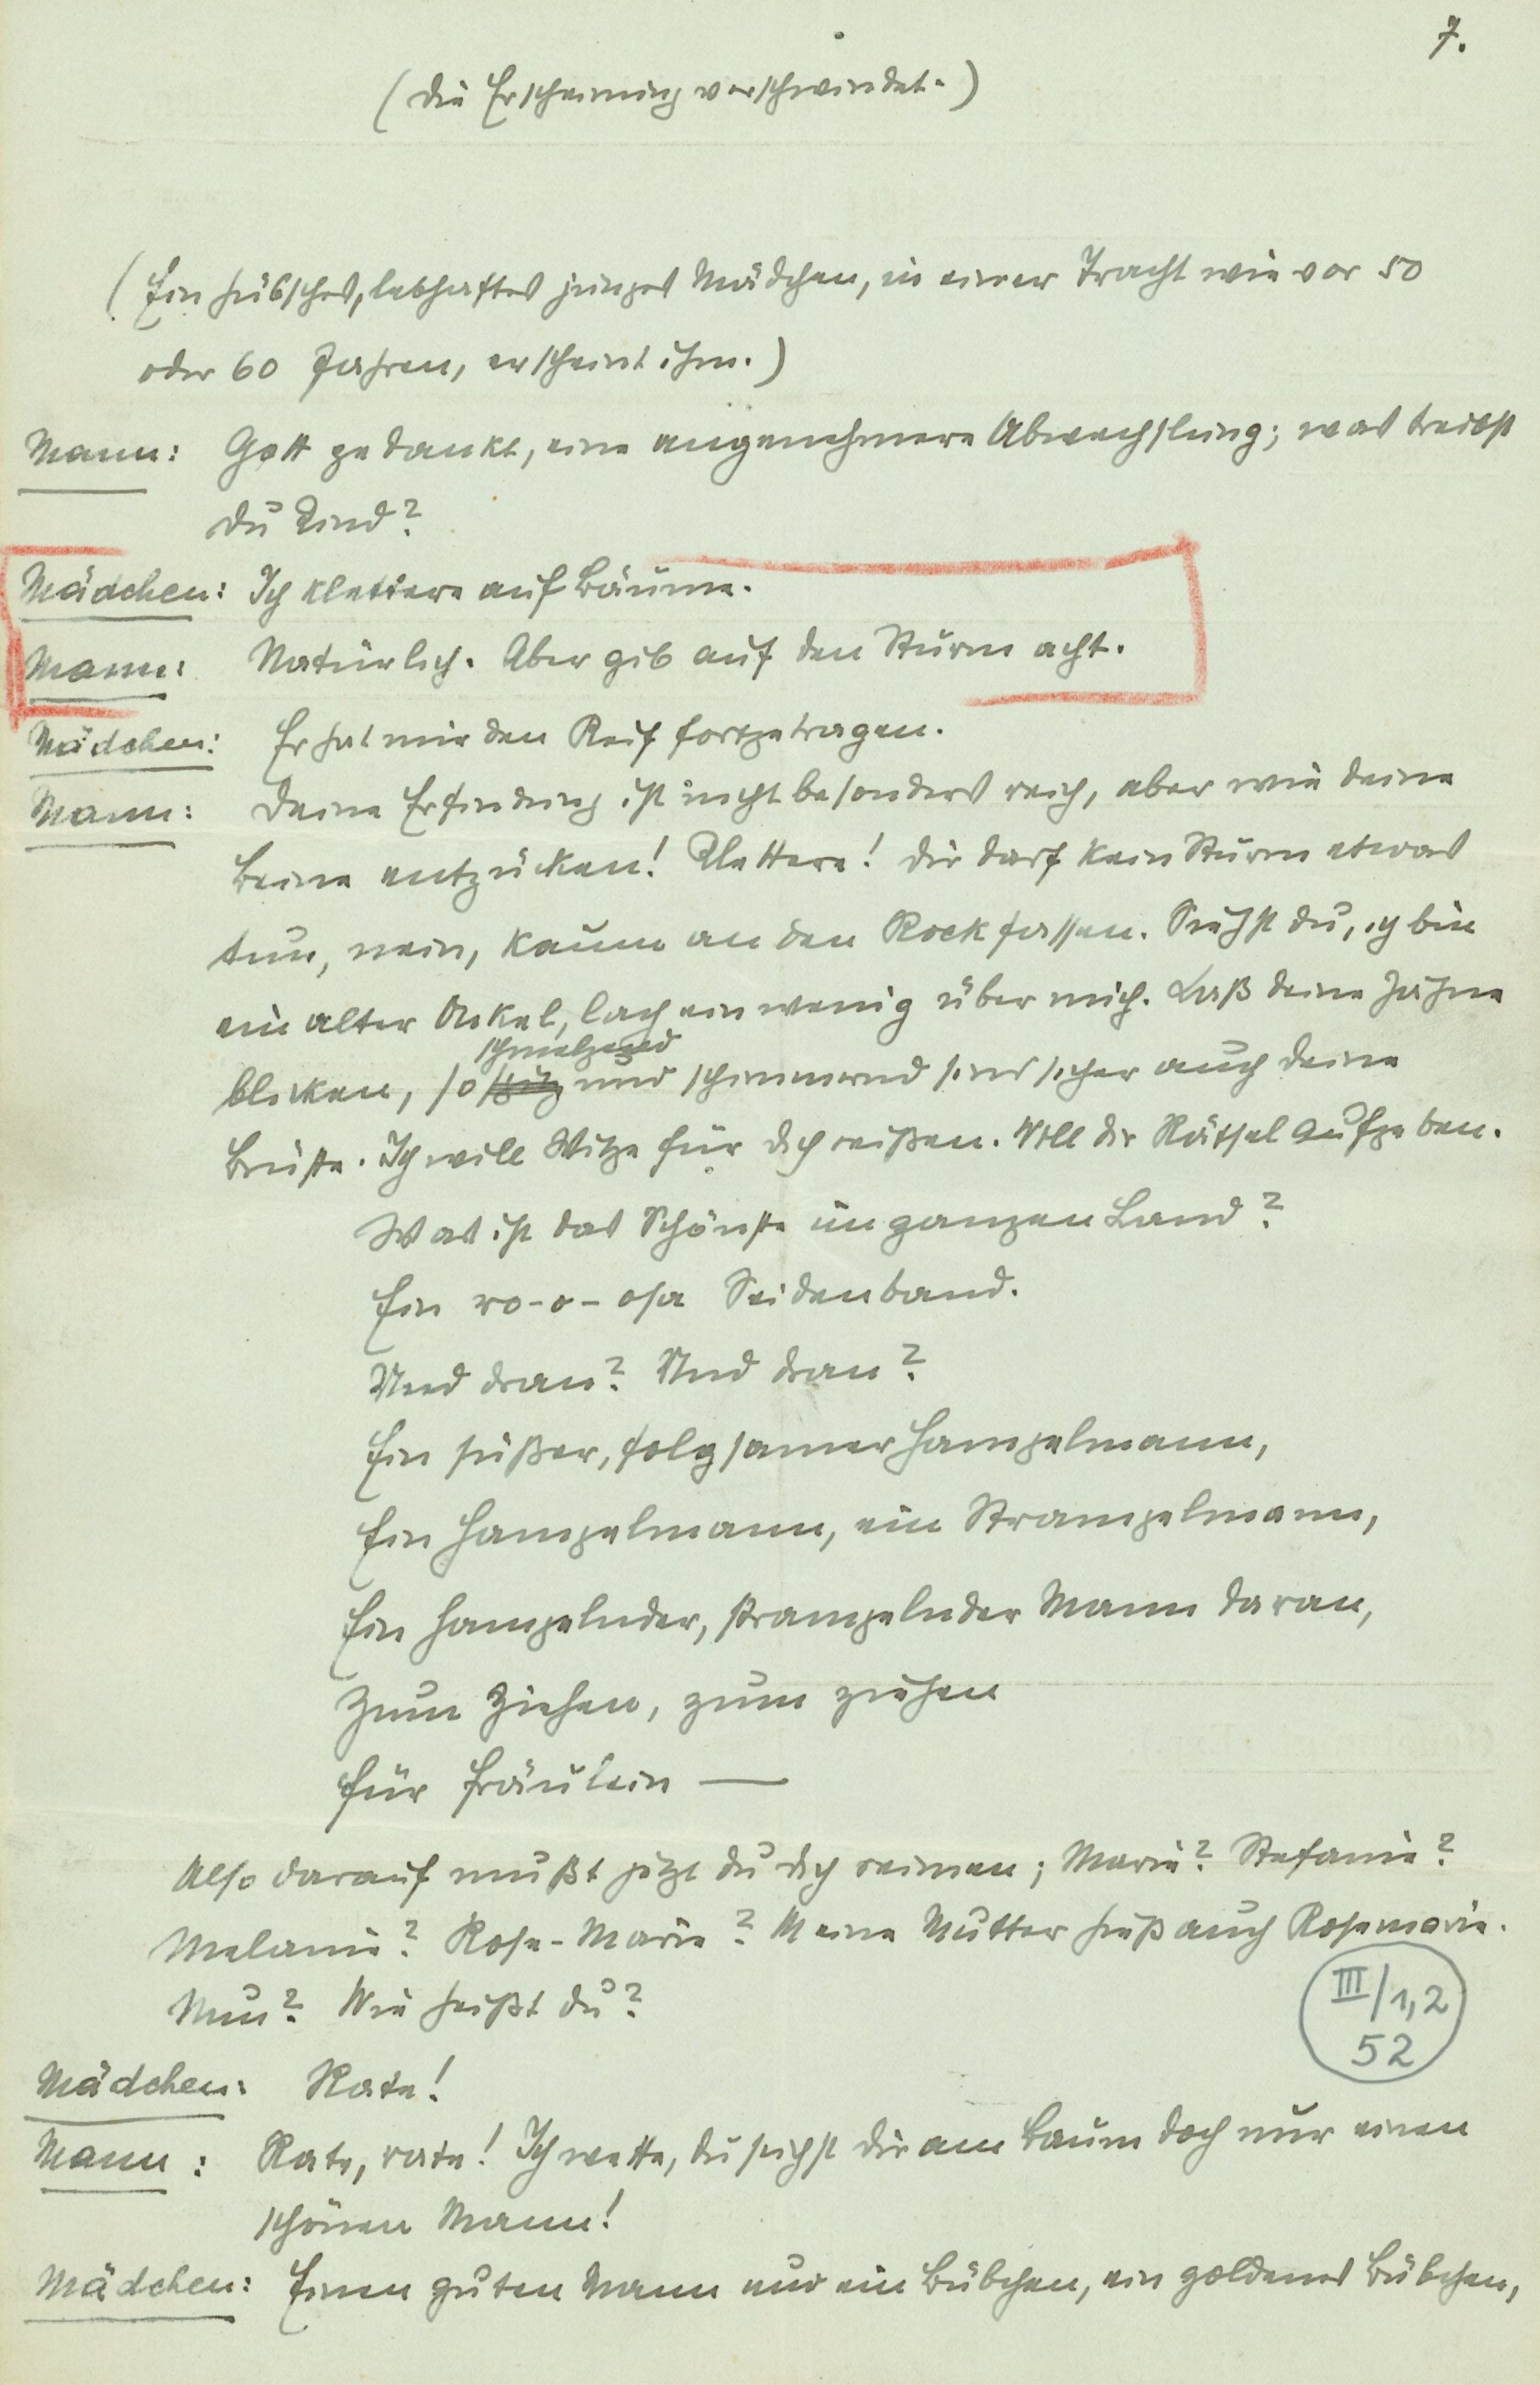 7.
(Die Erscheinung verschwindet.)
(Ein hübsches, lebhaftes junges Mädchen, in einer Tracht wie vor 50
oder 60 Jahren, erscheint ihm.)
Mann: Gott gedankt, eine angenehmere Abwechslung; was treibst
du Kind?
Mädchen: Ich klettere auf Bäume.
Mann: Natürlich. Aber gib auf den Sturm acht.
Mädchen: Er hat mir den Reif fortgetragen.
Mann: Deine Erfindung ist nicht besonders reich, aber wie deine
Beine entzücken! Klettere! Dir darf kein Sturm etwas
tun, nein, kaum an den Rock fassen. Siehst du, ich bin
ein alter Onkel, lach ein wenig über mich. Laß deine Zähne
schmelzend
blicken, so und schimmernd sind sicher auch deine
Brüste. Ich will Witze für dich reißen. Will dir Rätsel aufgeben.
Was ist das Schönste im ganzen Land?
Ein ro-o-osa Seidenband.
Und dran? Und dran?
Ein süßer, folgsamer Hampelmann,
Ein Hampelmann, ein Strampelmann,
Ein hampelnder, strampelnder Mann daran,
Zum Ziehen, zum ziehen
für Fräulein —
Also darauf mußt jetzt du dich reimen; Marie? Stefanie?
Melanie? Rose-Marie? Meine Mutter hieß auch Rosemarie.
Nun? Wie heißt du?
III/1,2
52
Mädchen: Rate!
Mann: Rate, rate! Ich wette, du suchst dir am Baum doch nur einen
schönen Mann!
Mädchen: Einen guten Mann und ein Bübchen, ein goldenes Bübchen,